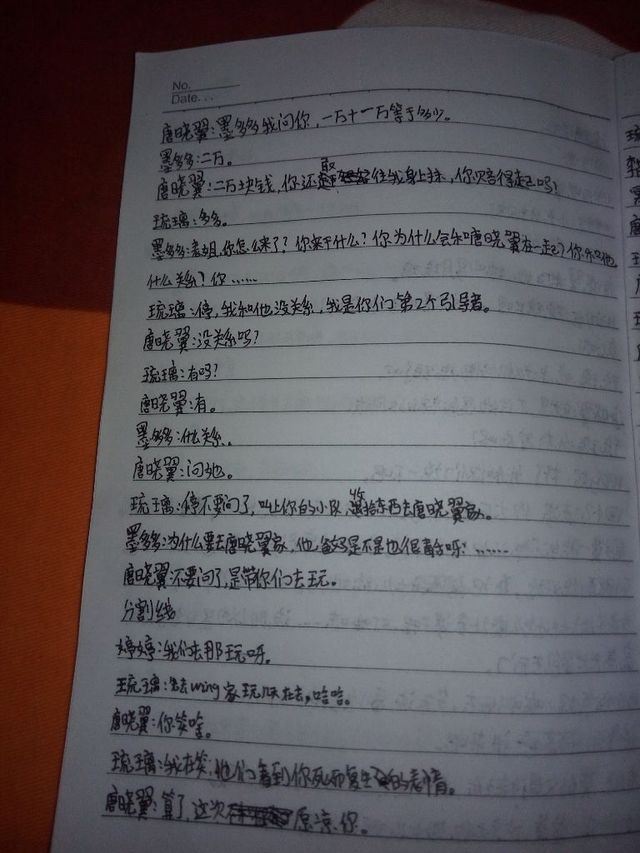 No.
Date...
唐晓翼:墨多多我问你,一万十一万等于多少。
墨多多:二万。
唐晓翼:二万块钱,你还敢往我身上抹,你赔得起吗?
琉璃:多多。
墨多多:表姐,你怎么来了?你来干什么?你为什么会和唐晓翼在一起?你和他
什么关系?你……
琉璃:停,我和他没关系,我是你们第2个引导者。
唐晓翼:没关系吗?
琉璃:有吗?
唐晓翼:有。
墨多多:什么关系。
唐晓翼:问她。
琉璃:停不要问了,叫上你的小队,收拾东西去唐晓翼家。
墨多多:为什么要去唐晓翼家,他爸妈是不是也很毒舌呀……
唐晓翼:不要问了,是带你们去玩。
分割线
婷婷:我们去那玩呀。
琉璃:先去wing家玩再去,哈哈。
唐晓翼:你笑啥。
琉璃:我在笑,他们看到你死而复生的表情。
唐晓翼:算了,这次原凉你。
琉
墨
唐
琉